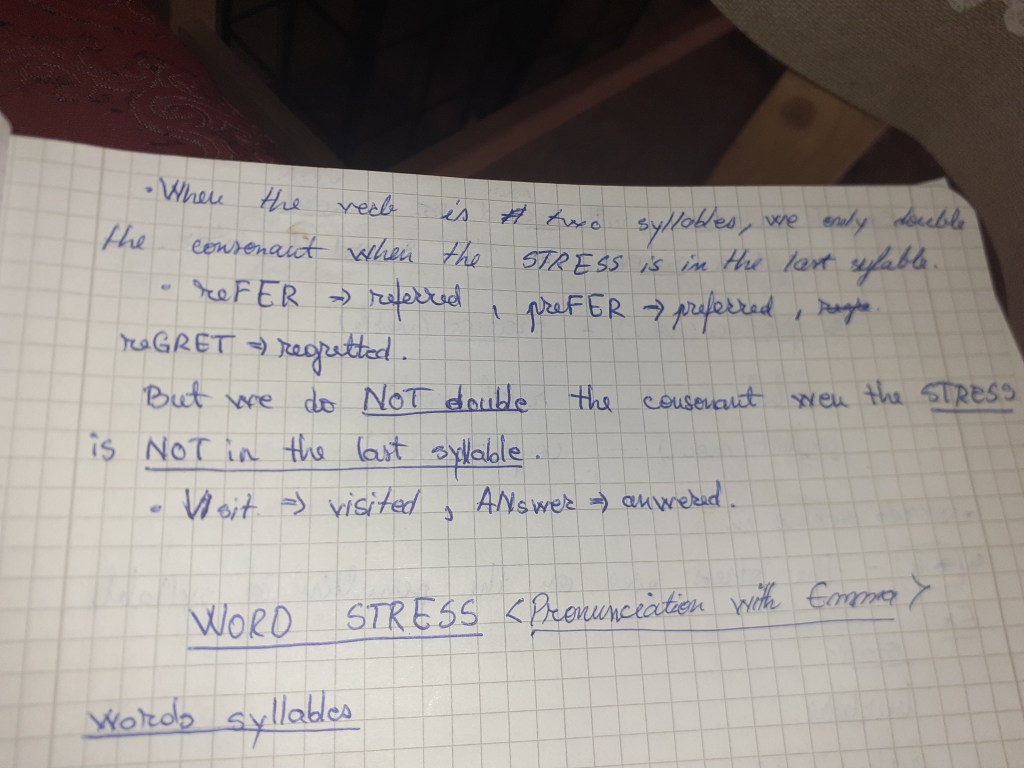 • When the verb is two syllables, we only double
the consonant when the STRESS is in the last syllable.
• reFER ⇒ referred, preFER → preferred,
reGRET ⇒ regretted.
But we do NOT double the consonant wen the STRESS
is NOT in the last syllable.
• VIsit ⇒ visited, ANswer ⇒ answered.
WORD STRESS <Pronunciation with Emma>
Words syllables